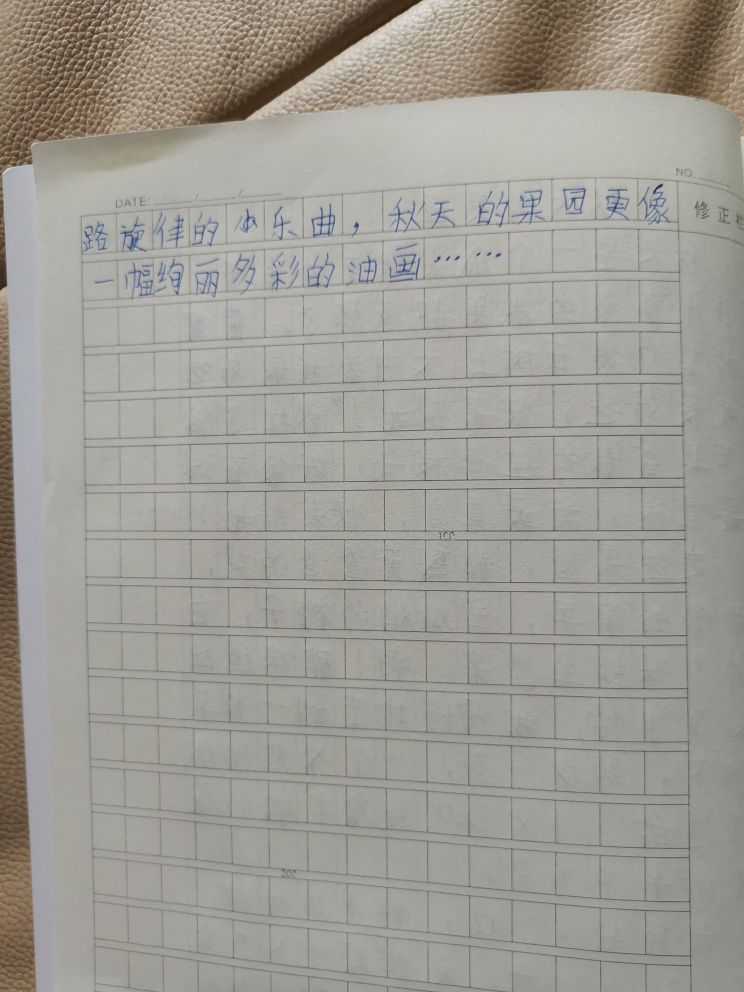 DATE: / /
NO.
路旋律的小乐曲，秋天的果园更像
修正栏
一幅绚丽多彩的油画……
100
200